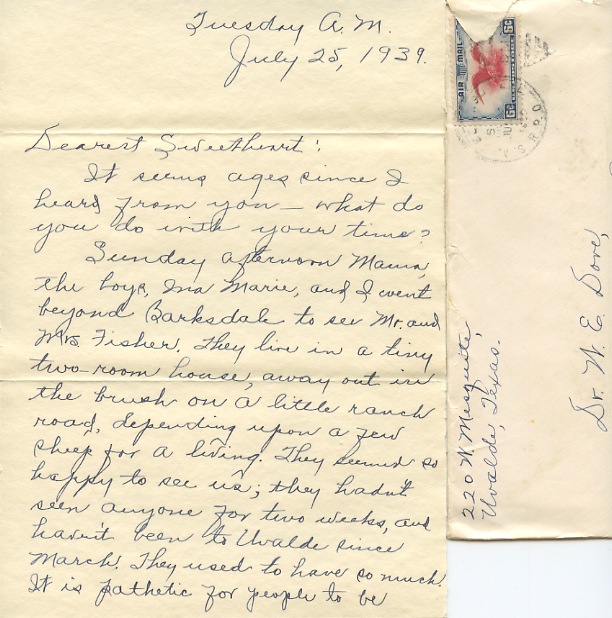 Tuesday A.M.
July 25, 1939.
Dearest Sweetheart!
It seems ages since I
heard from you — what do
you do with your time?
Sunday afternoon Mama,
the boys, Ina Marie, and I went
beyond Barksdale to see Mr. and
Mrs Fisher. They live in a tiny
two-room house, away out in
the brush on a little ranch
road, depending upon a few
sheep for a living. They seemed so
happy to see us; they hadn't
seen anyone for two weeks, and
haven't been to Uvalde since
March. They used to have so much.
It is pathetic for people to be
AIR MAIL
6¢
6¢
R.P.O.
220 W. Mesquite,
Uvalde, Texas.
Dr. W. E. Dove,